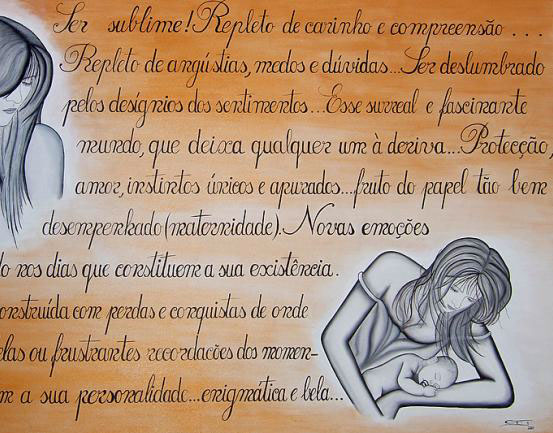 Ser sublime! Repleto de carinho e compreensão ...
Repleto de angústias, medos e dúvidas...Ser deslumbrado
pelos desígnios dos sentimentos...Esse surreal e fascinante
mundo, que deixa qualquer um à deriva...Protecção,
amor, instintos únicos e apurados...fruto do papel tão bem
desempenhado (maternidade). Novas emoções
do nos dias que constituem a sua existência.
onstruída com perdas e conquistas de onde
elas ou frustrantes recordações dos momen-
m a sua personalidade...enigmática e bela...